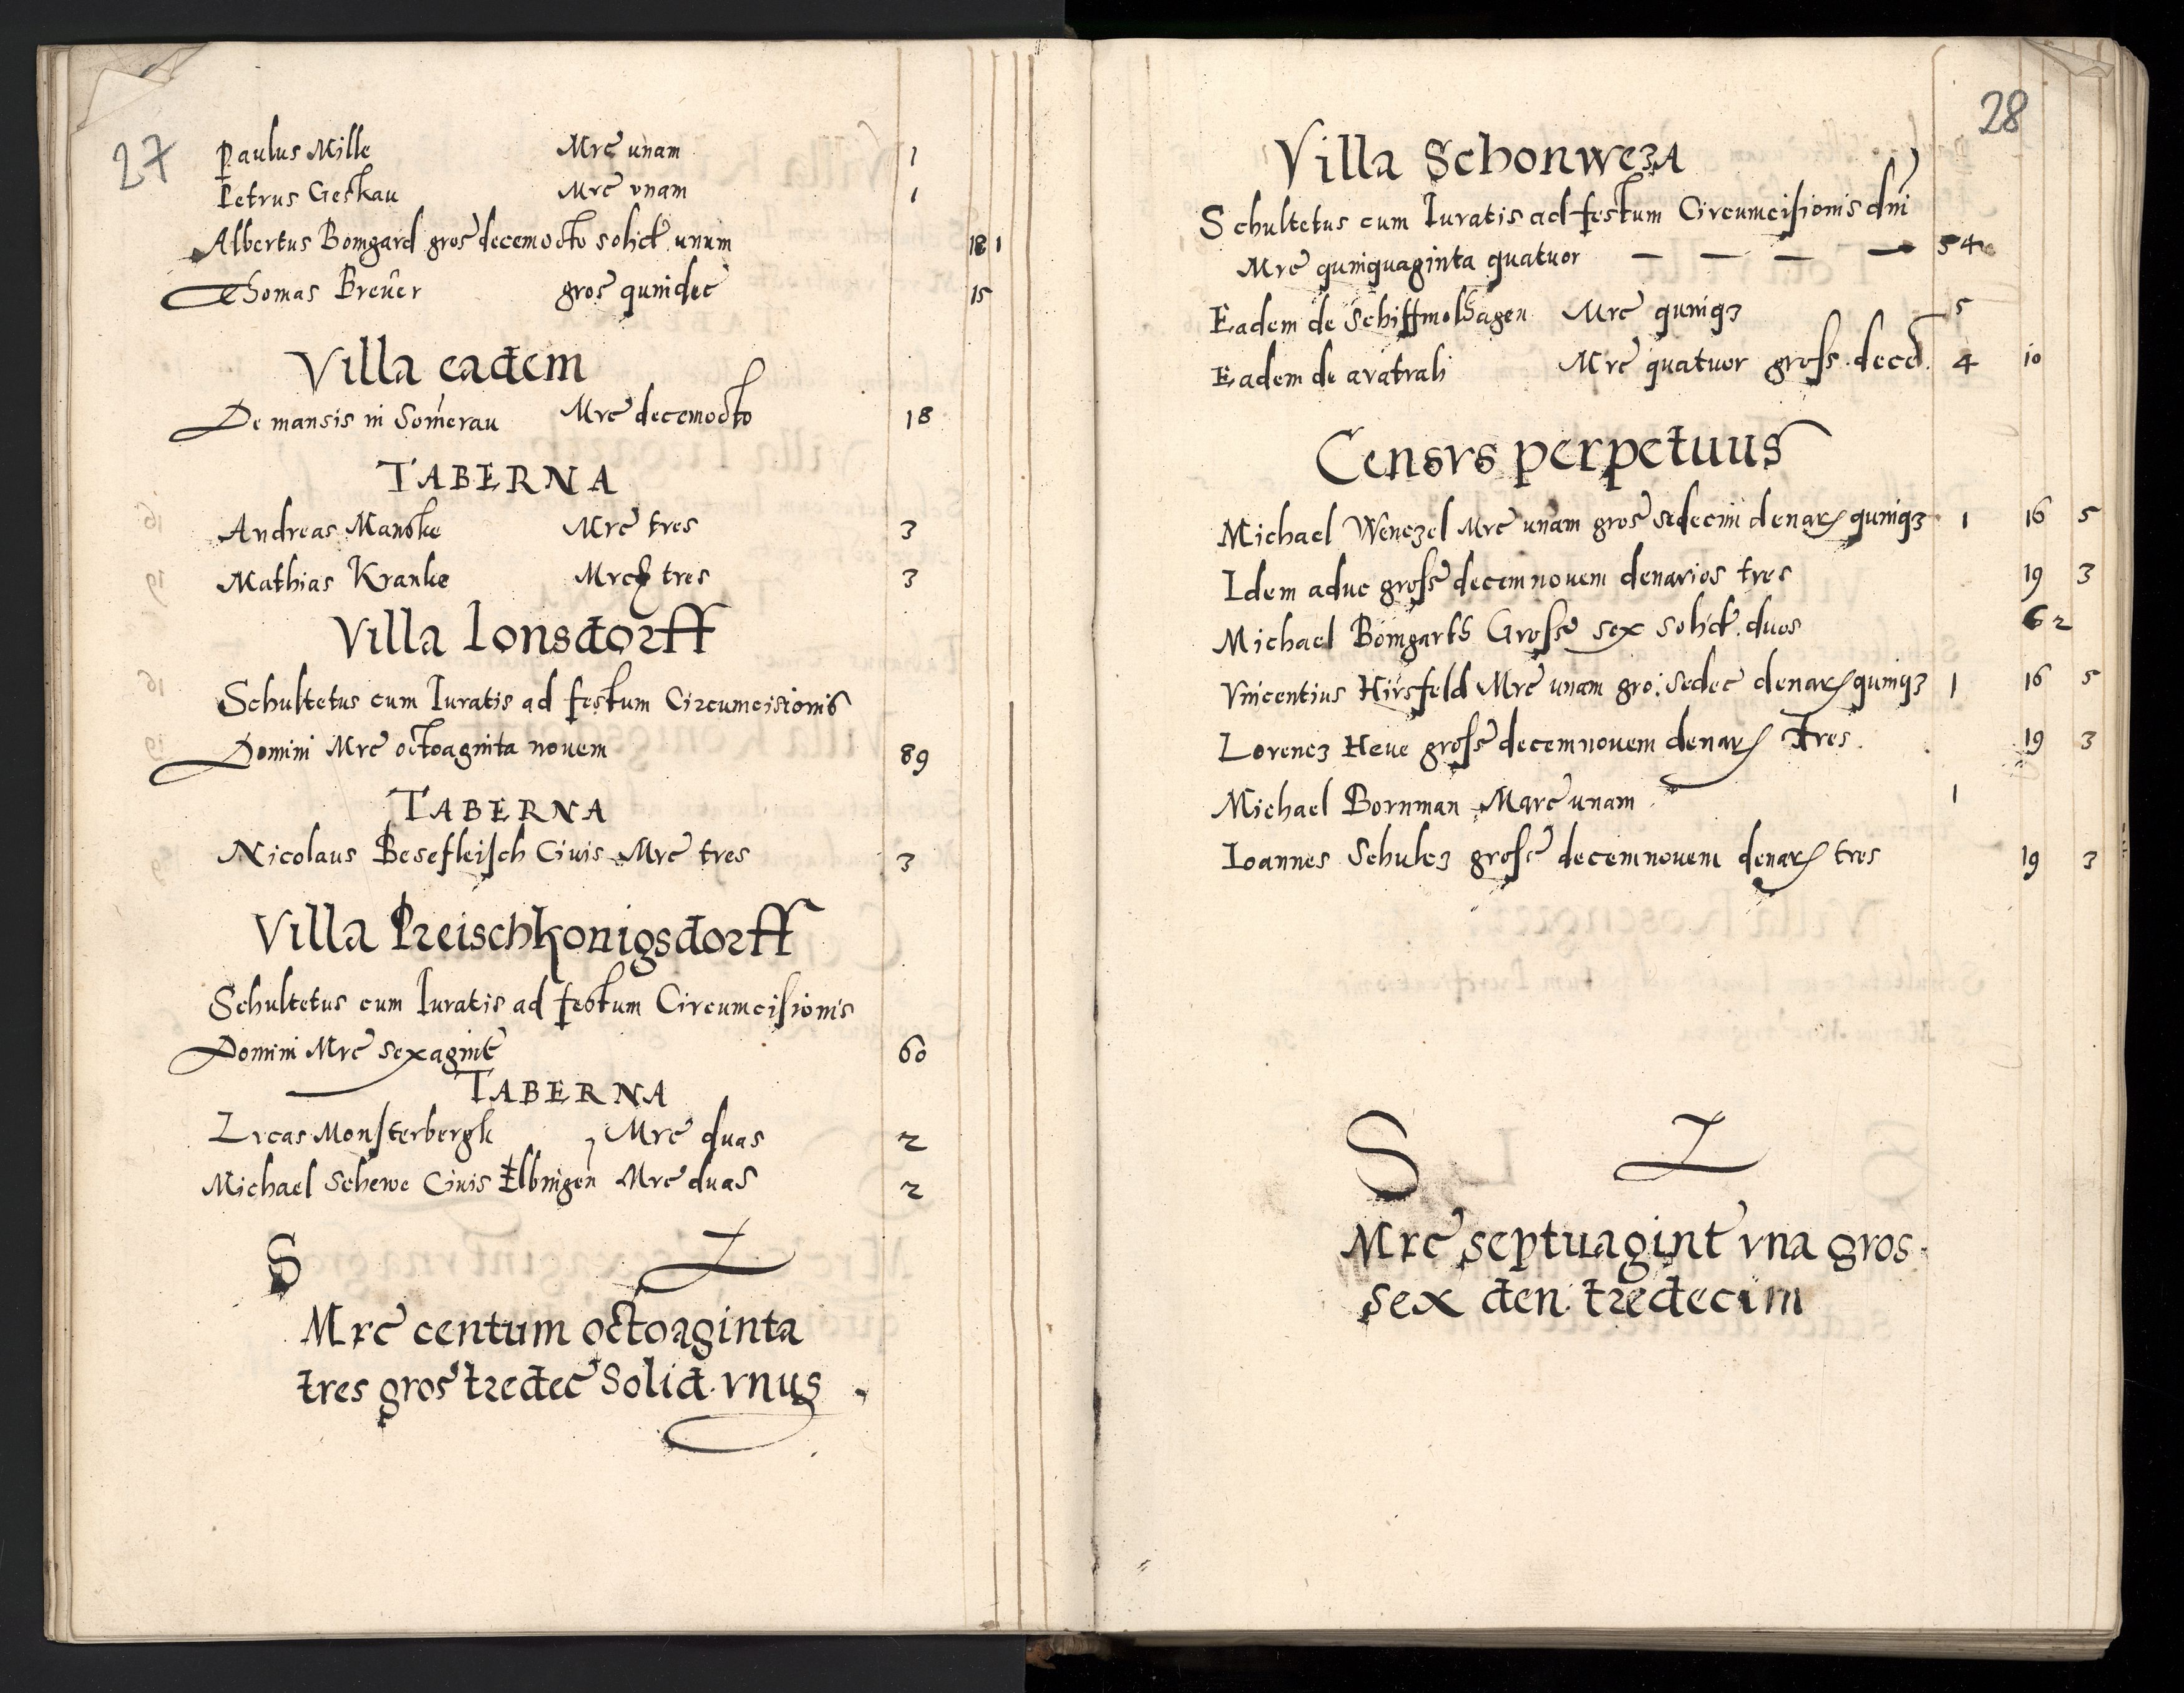 27
Paulus Mille Mrc unam 1
Petrus Geskau Mrc vnam 1
Albertus Bomgard gros decemocto solid. unum 18 1
Thomas Brever gros quindec 15
Villa eadem
De mansis in Somerau Mrc decemocto 18
TABERNA
Andreas Manske Mrc tres 3
Mathias Kranke Mrc tres 3
Villa Ionsdorff
Schultetus cum Iuratis ad festum Circumcisionis
Domini Mrc octoaginta novem 89
TABERNA
Nicolaus Besefleisch Civis Mrc tres 3
Villa Preischkonigsdorff
Schultetus cum Iuratis ad festum Circumcisionis
Domini Mrc sexagint 60
TABERNA
Lvcas Monsterbergk Mrc duas 2
Michael Schewe Civis Elbingen Mrc duas 2
S
Mrc centum octoaginta
tres gros tredec Solid. vnus
28
Villa Schonweza
Schultetus cum Iuratis ad festum Circumcisionis dni
Mrc quinquaginta quatuor — — — — 54
Eadem de Mrc quinqz 5
Eadem de aratrali Mrc quatuor gross. dece 4 10
Censvs perpetuus
Michael Wenczel Mrc unam gros sedecim denar quinqz 1 16 5
Idem aduc gross decemnouem denarios tres 19 3
Michael Bomgarts Gross sex solid. duos 6 2
Vincentius Hirsfeld Mrc unam gro: sedec denar quinqz 1 16 5
Lorencz Heue gross decemnouem denar tres. 19 3
Michael Bornman Marc unam 1
Ioannes Schulcz gross decemnouem denar tres 19 3
S
Mrc septuagint vna gros.
sex den. tredecim